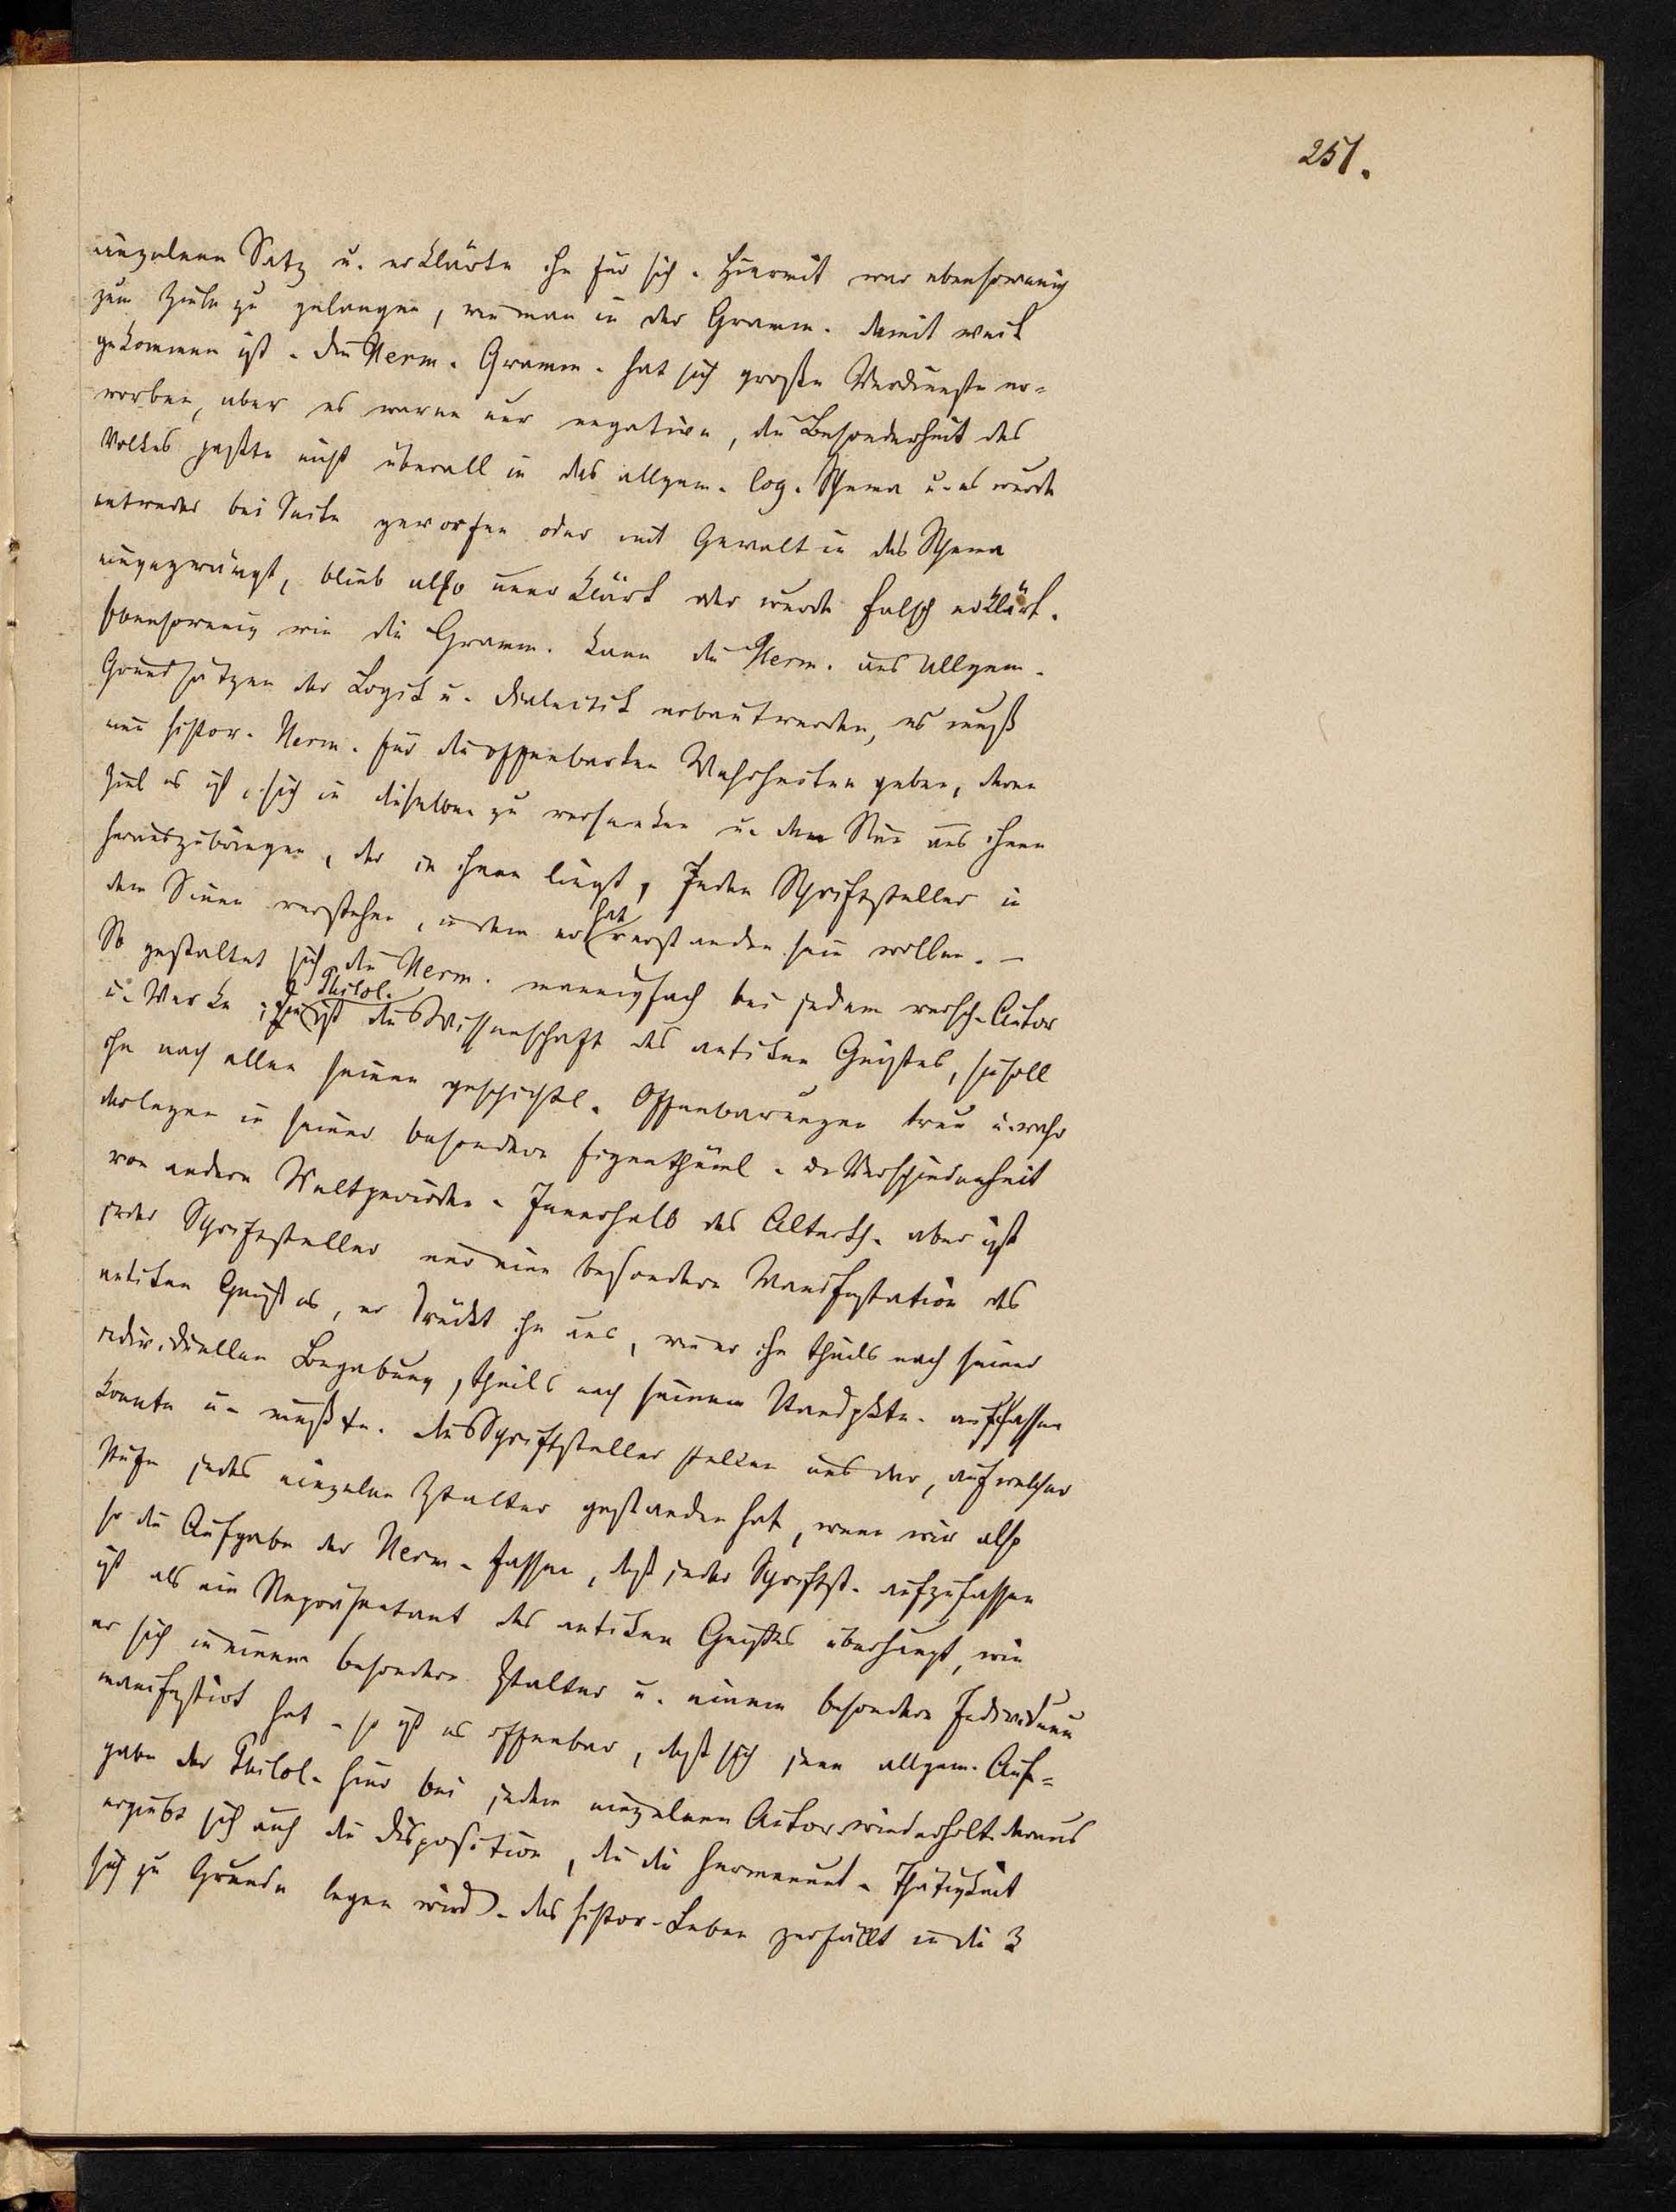 251.
einzelnen Satz u. erklärte ihn für sich. Hiermit war ebensowenig
zum Ziele zu gelangen, wie man in der Gramm. damit weit
gekommen ist. Die Herm. Gramm. hat sich große Verdienste er-
worben, aber es waren nur negative, die Besonderheit des
Volkes paßte nicht überall in das allgem. log. Schema u. es wurde
entweder bei Seite geworfen oder mit Gewalt in das Schema
eingezwängt, blieb also unerklärt oder wurde falsch erklärt.
Ebensowenig wie die Gramm. kann die Herm. aus allgem.
Grundsätzen der Logik u. Dialectik erbaut werden, es muß
eine histor. Herm. für die offenbarten Wahrheiten geben, deren
Ziel es ist, sich in dieselben zu versenken u. den Sinn aus ihnen
herauszubringen, der in ihnen liegt, jeden Schriftsteller in
dem Sinne verstehen, in dem er hat verstanden sein wollen. –
So gestaltet sich die Herm. mannigfach bei jedem versch. Autor
u. Werke; die Philol. ist die Wissenschaft des antiken Geistes, sie soll
ihn nach allen seinen geschichtl. Offenbarungen treu u. wahr
darlegen in seiner besondern Eigenthüml. u. Verschiedenheit
von andern Weltperioden. Innerhalb des Alterth. aber ist
jeder Schriftsteller nur eine besondere Manifestation des
antiken Geistes, er drückt ihn aus, wie er ihn theils nach seiner
individuellen Begabung, theils nach seinem Standpkte. auffassen
konnte u. mußte. Die Schriftsteller stellen uns dar, auf welcher
Stufe jedes einzelne Ztalter gestanden hat, wenn wir also
so die Aufgabe der Herm. fassen, daß jeder Schriftst. aufzufassen
ist als ein Repräsentant des antiken Geistes überhaupt, wie
er sich in einem besondern Ztalter u. einem besondern Individuum
manifestirt hat – so ist es offenbar, daß sich jene allgem. Auf-
gabe der Philol. hier bei jedem einzelnen Autor wiederholt. Daraus
ergiebt sich auch die Disposition, die die hermeneut. Thätigkeit
sich zu Grunde legen wird. Das histor. Leben zerfällt in die 3